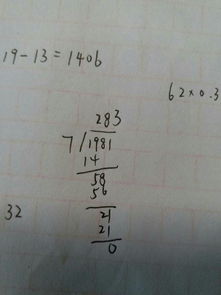 19-13=1406
62×0.3
283
7/1981
14
58
56
21
21
0
32